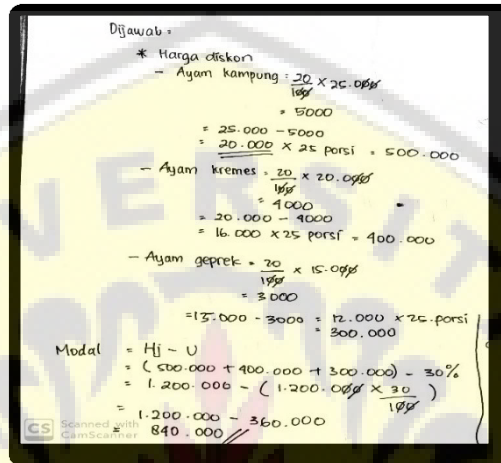 Dijawab :
* Harga diskon
- Ayam kampung : 20/100 × 25.000
= 5000
= 25.000 - 5000
= 20.000 × 25 porsi = 500.000
- Ayam kremes = 20/100 × 20.000
= 4000
= 20.000 - 4000
= 16.000 × 25 porsi = 400.000
- Ayam geprek = 20/100 × 15.000
= 3000
= 15.000 - 3000 = 12.000 × 25 porsi
= 300.000
Modal = Hj - U
= (500.000 + 400.000 + 300.000) - 30%
= 1.200.000 - (1.200.000 × 30/100)
= 1.200.000 - 360.000
= 840.000
CS Scanned with
CamScanner